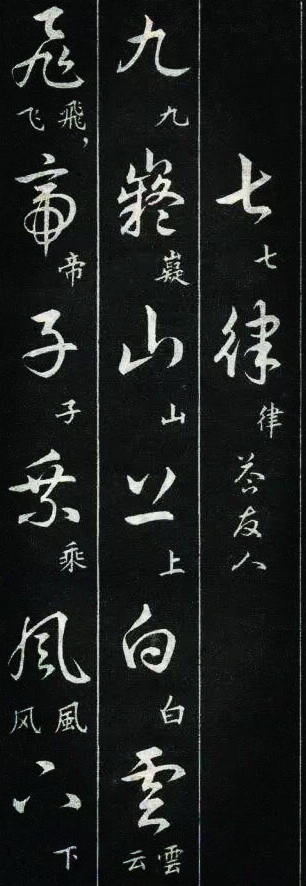 七律
七律答友人
九嶷山上白雲
九嶷山上雲云
飛帝子乘風下
飛，飞帝子乘風风下